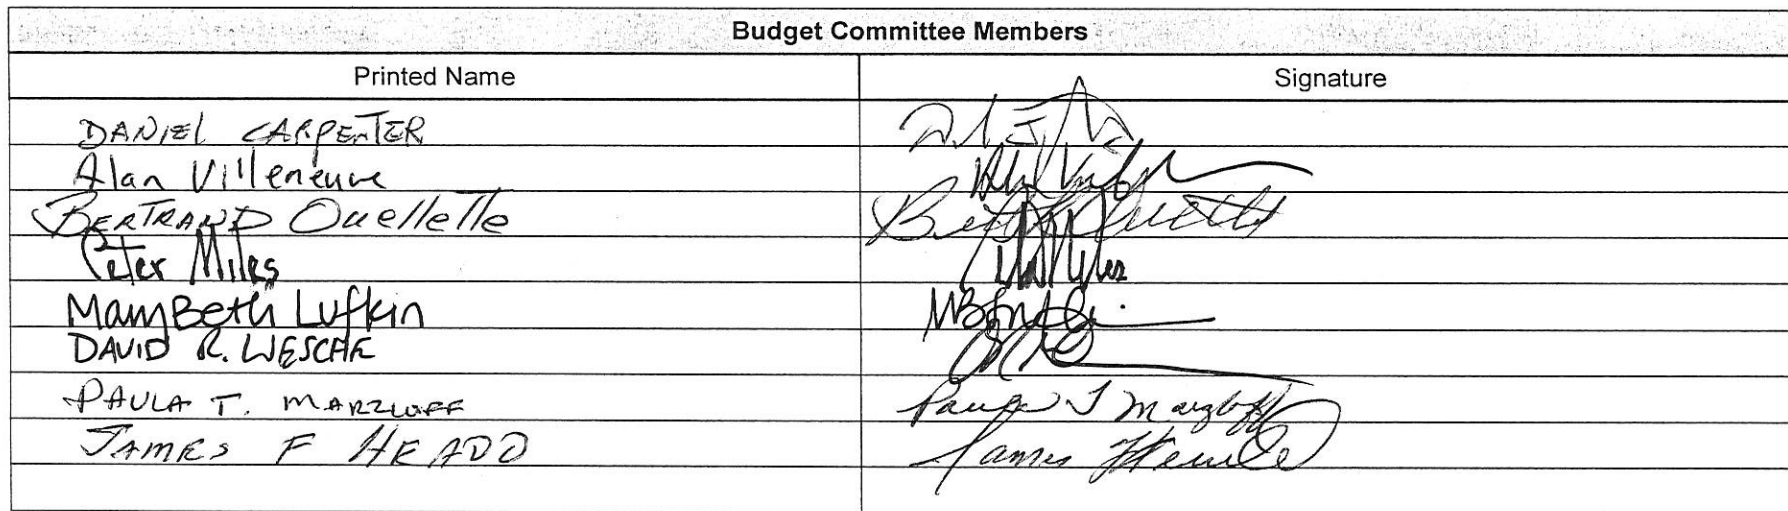 Budget Committee Members
Printed Name Signature
DANIEL CARPENTER
Alan Villeneuve
BERTRAND Ouellette
Peter Miles
MaryBeth Lufkin
DAVID R. WESCHE
PAULA T. MARZLOFF Paula T Marzloff
JAMES F HEADD James F Headd